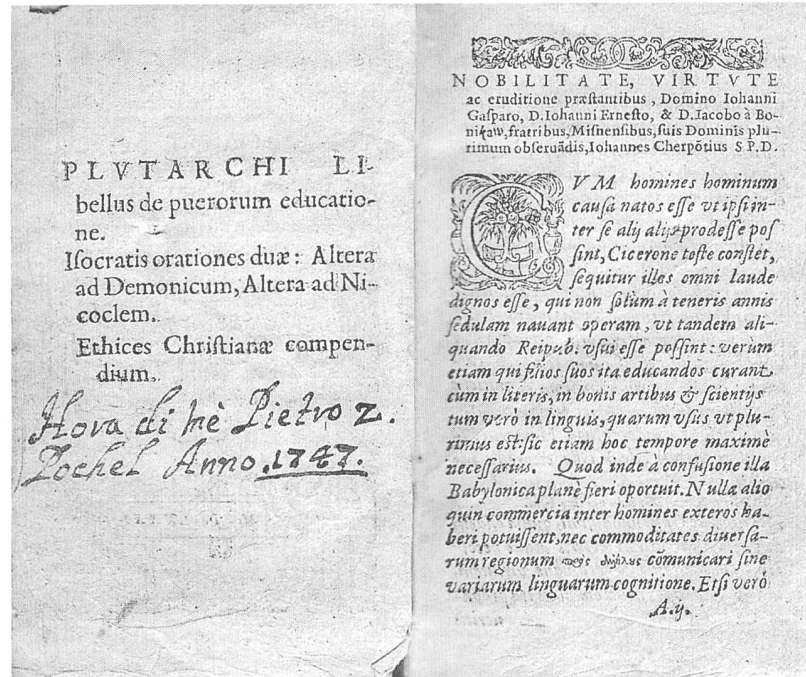 PLVTARCHI LI-
bellus de puerorum educatio-
ne.
Isocratis orationes duæ: Altera
ad Demonicum, Altera ad Ni-
coclem.
Ethices Christianæ compen-
dium.
Hora di mè Pietro Z.
Pochel Anno 1747.
NOBILITATE, VIRTVTE
ac eruditione præstantibus, Domino Iohanni
Gasparo, D. Iohanni Ernesto, & D. Iacobo à Bo-
nikaw, fratribus, Misnensibus, suis Dominis plu-
rimum obseruādis, Iohannes Cherpōtius S P. D.
CVM homines hominum
causa natos esse vt ipsi in-
ter se alij alijs prodesse pos
sint, Cicerone teste constet,
sequitur illos omni laude
dignos esse, qui non solùm à teneris annis
sedulam nauant operam, vt tandem ali-
quando Reipub. vsui esse possint: verùm
etiam qui filios suos ita educandos curant
cùm in literis, in bonis artibus & scientijs
tum verò in linguis, quarum vsus vt plu-
rimus est: sic etiam hoc tempore maximè
necessarius. Quod inde à confusione illa
Babylonica planè fieri oportuit. Nulla alio
quin commercia inter homines exteros ha-
beri potuissent, nec commoditates diuersa-
rum regionum cōmunicari sine
variarum linguarum cognitione. Etsi verò
A.ij.